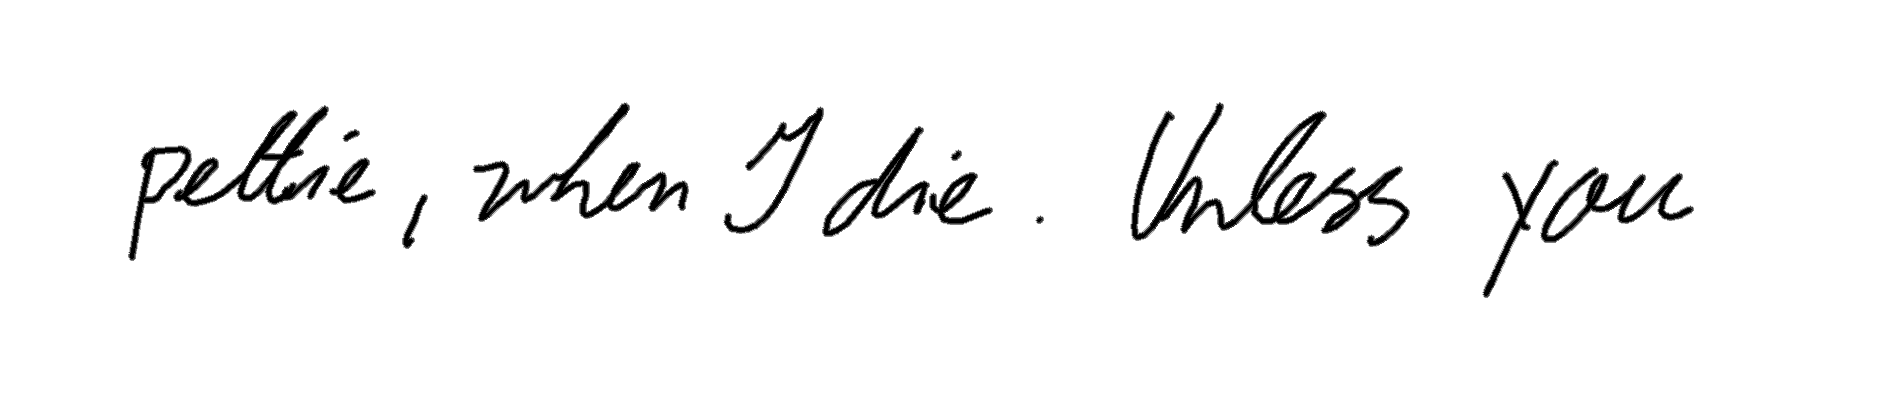 pettie, when I die. Unless you